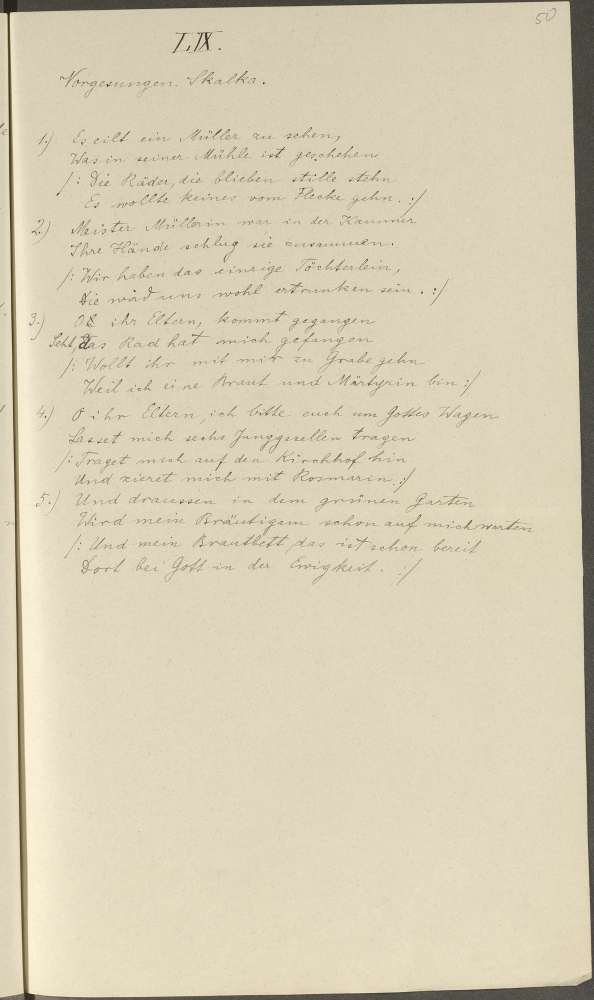 50
LIX.
Vorgesungen. Skalka.
1.) Es eilt ein Müller zu sehen,
Was in seiner Mühle ist geschehen
/: Die Räder, die blieben stille stehn
Es wollte keines vom Flecke gehn. :/
2.) Meister Müllerin war in der Kammer
Ihre Hände schlug sie zusammen.
/: Wir haben das einzige Töchterlein,
Die wird uns wohl ertrunken sein. :/
3.) ihr Eltern, kommt gegangen
Seht, das Rad hat mich gefangen
/: Wollt ihr mit mir zu Grabe gehn
Weil ich eine Braut und Märtyrin bin :/
4.) O ihr Eltern, ich bitte euch um Gottes Wagen
Lasset mich sechs Junggesellen tragen
/: Traget mich auf den Kirchhof hin
Und zieret mich mit Rosmarin. :/
5.) Und draussen in dem grünen Garten
Wird mein Bräutigam schon auf mich warten
/: Und mein Brautbett, das ist schon bereit
Dort bei Gott in der Ewigkeit. :/